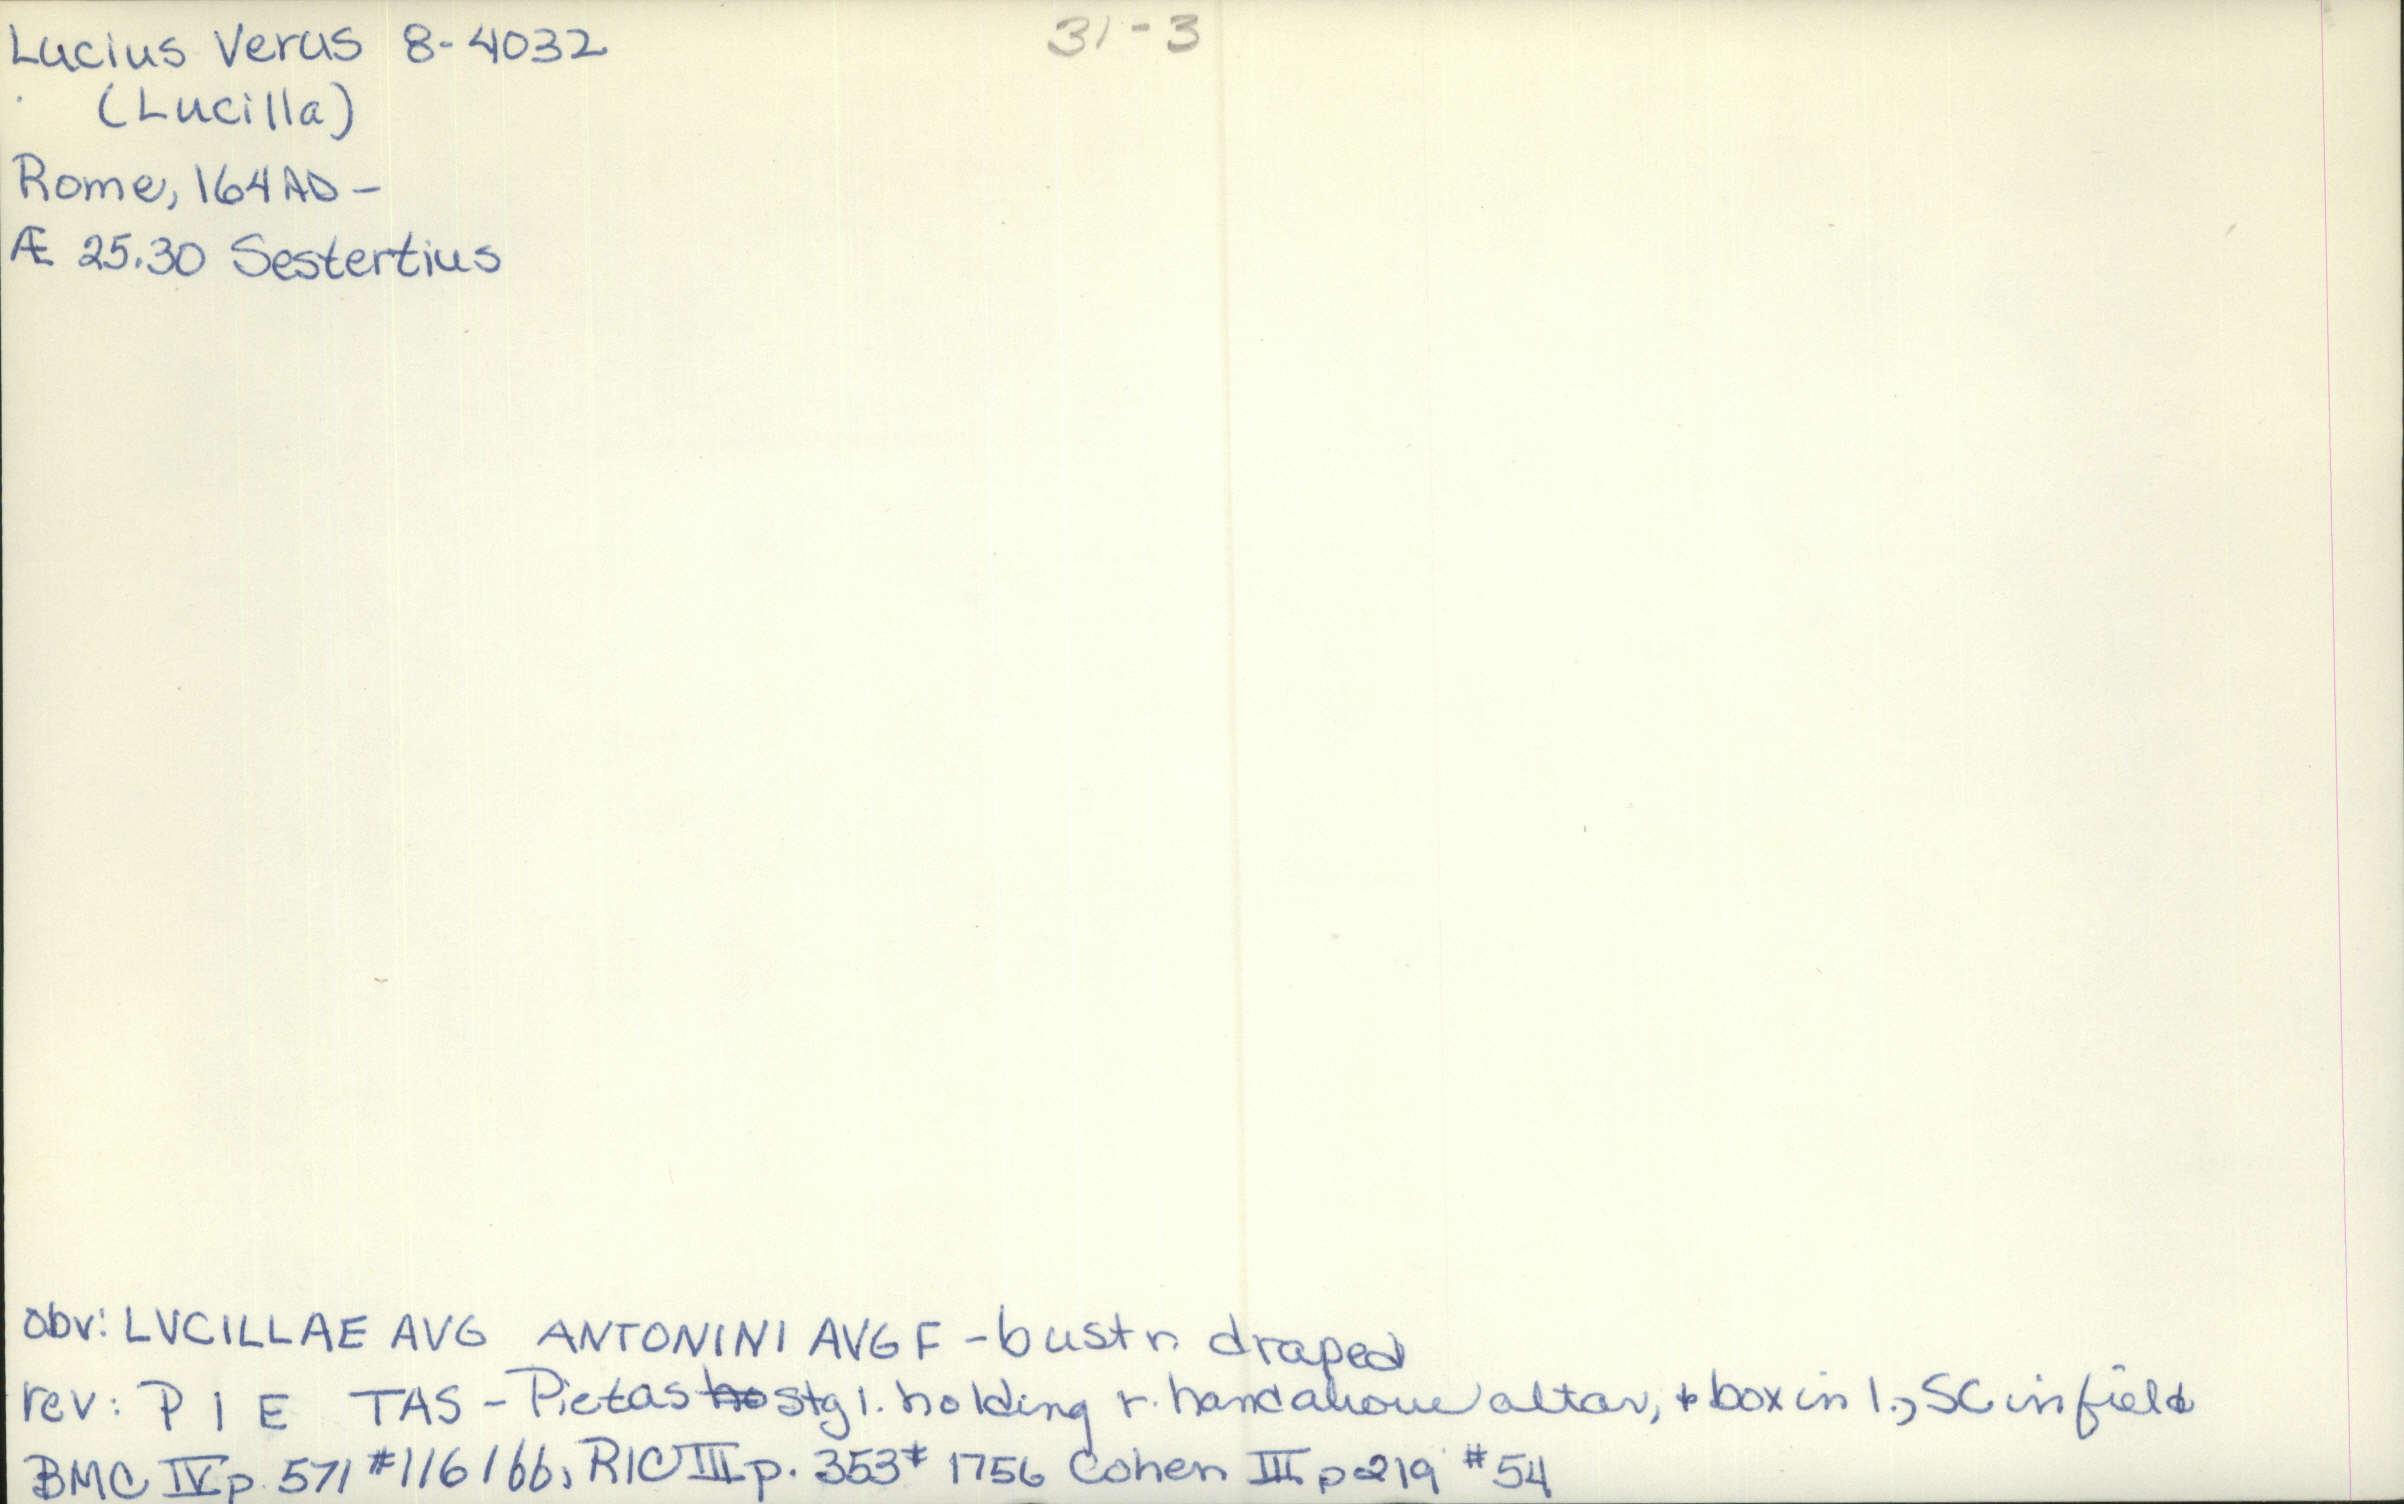 Lucius Verus 8-4032
31-3
(Lucilla)
Rome, 164 AD -
Æ 25.30 Sestertius
obv: LVCILLAE AVG ANTONINI AVG F - bust r. draped
rev: P I E TAS - Pietas stg l. holding r. hand above altar, & box in l., SC in field
BMC IV p. 571 #1161 bb, RIC III p. 353 # 1756 Cohen III p 219 #54